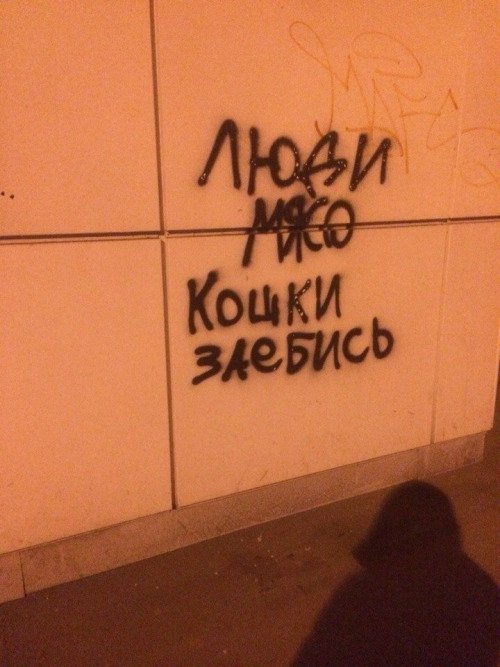 Люди
мясо
Кошки
заебись